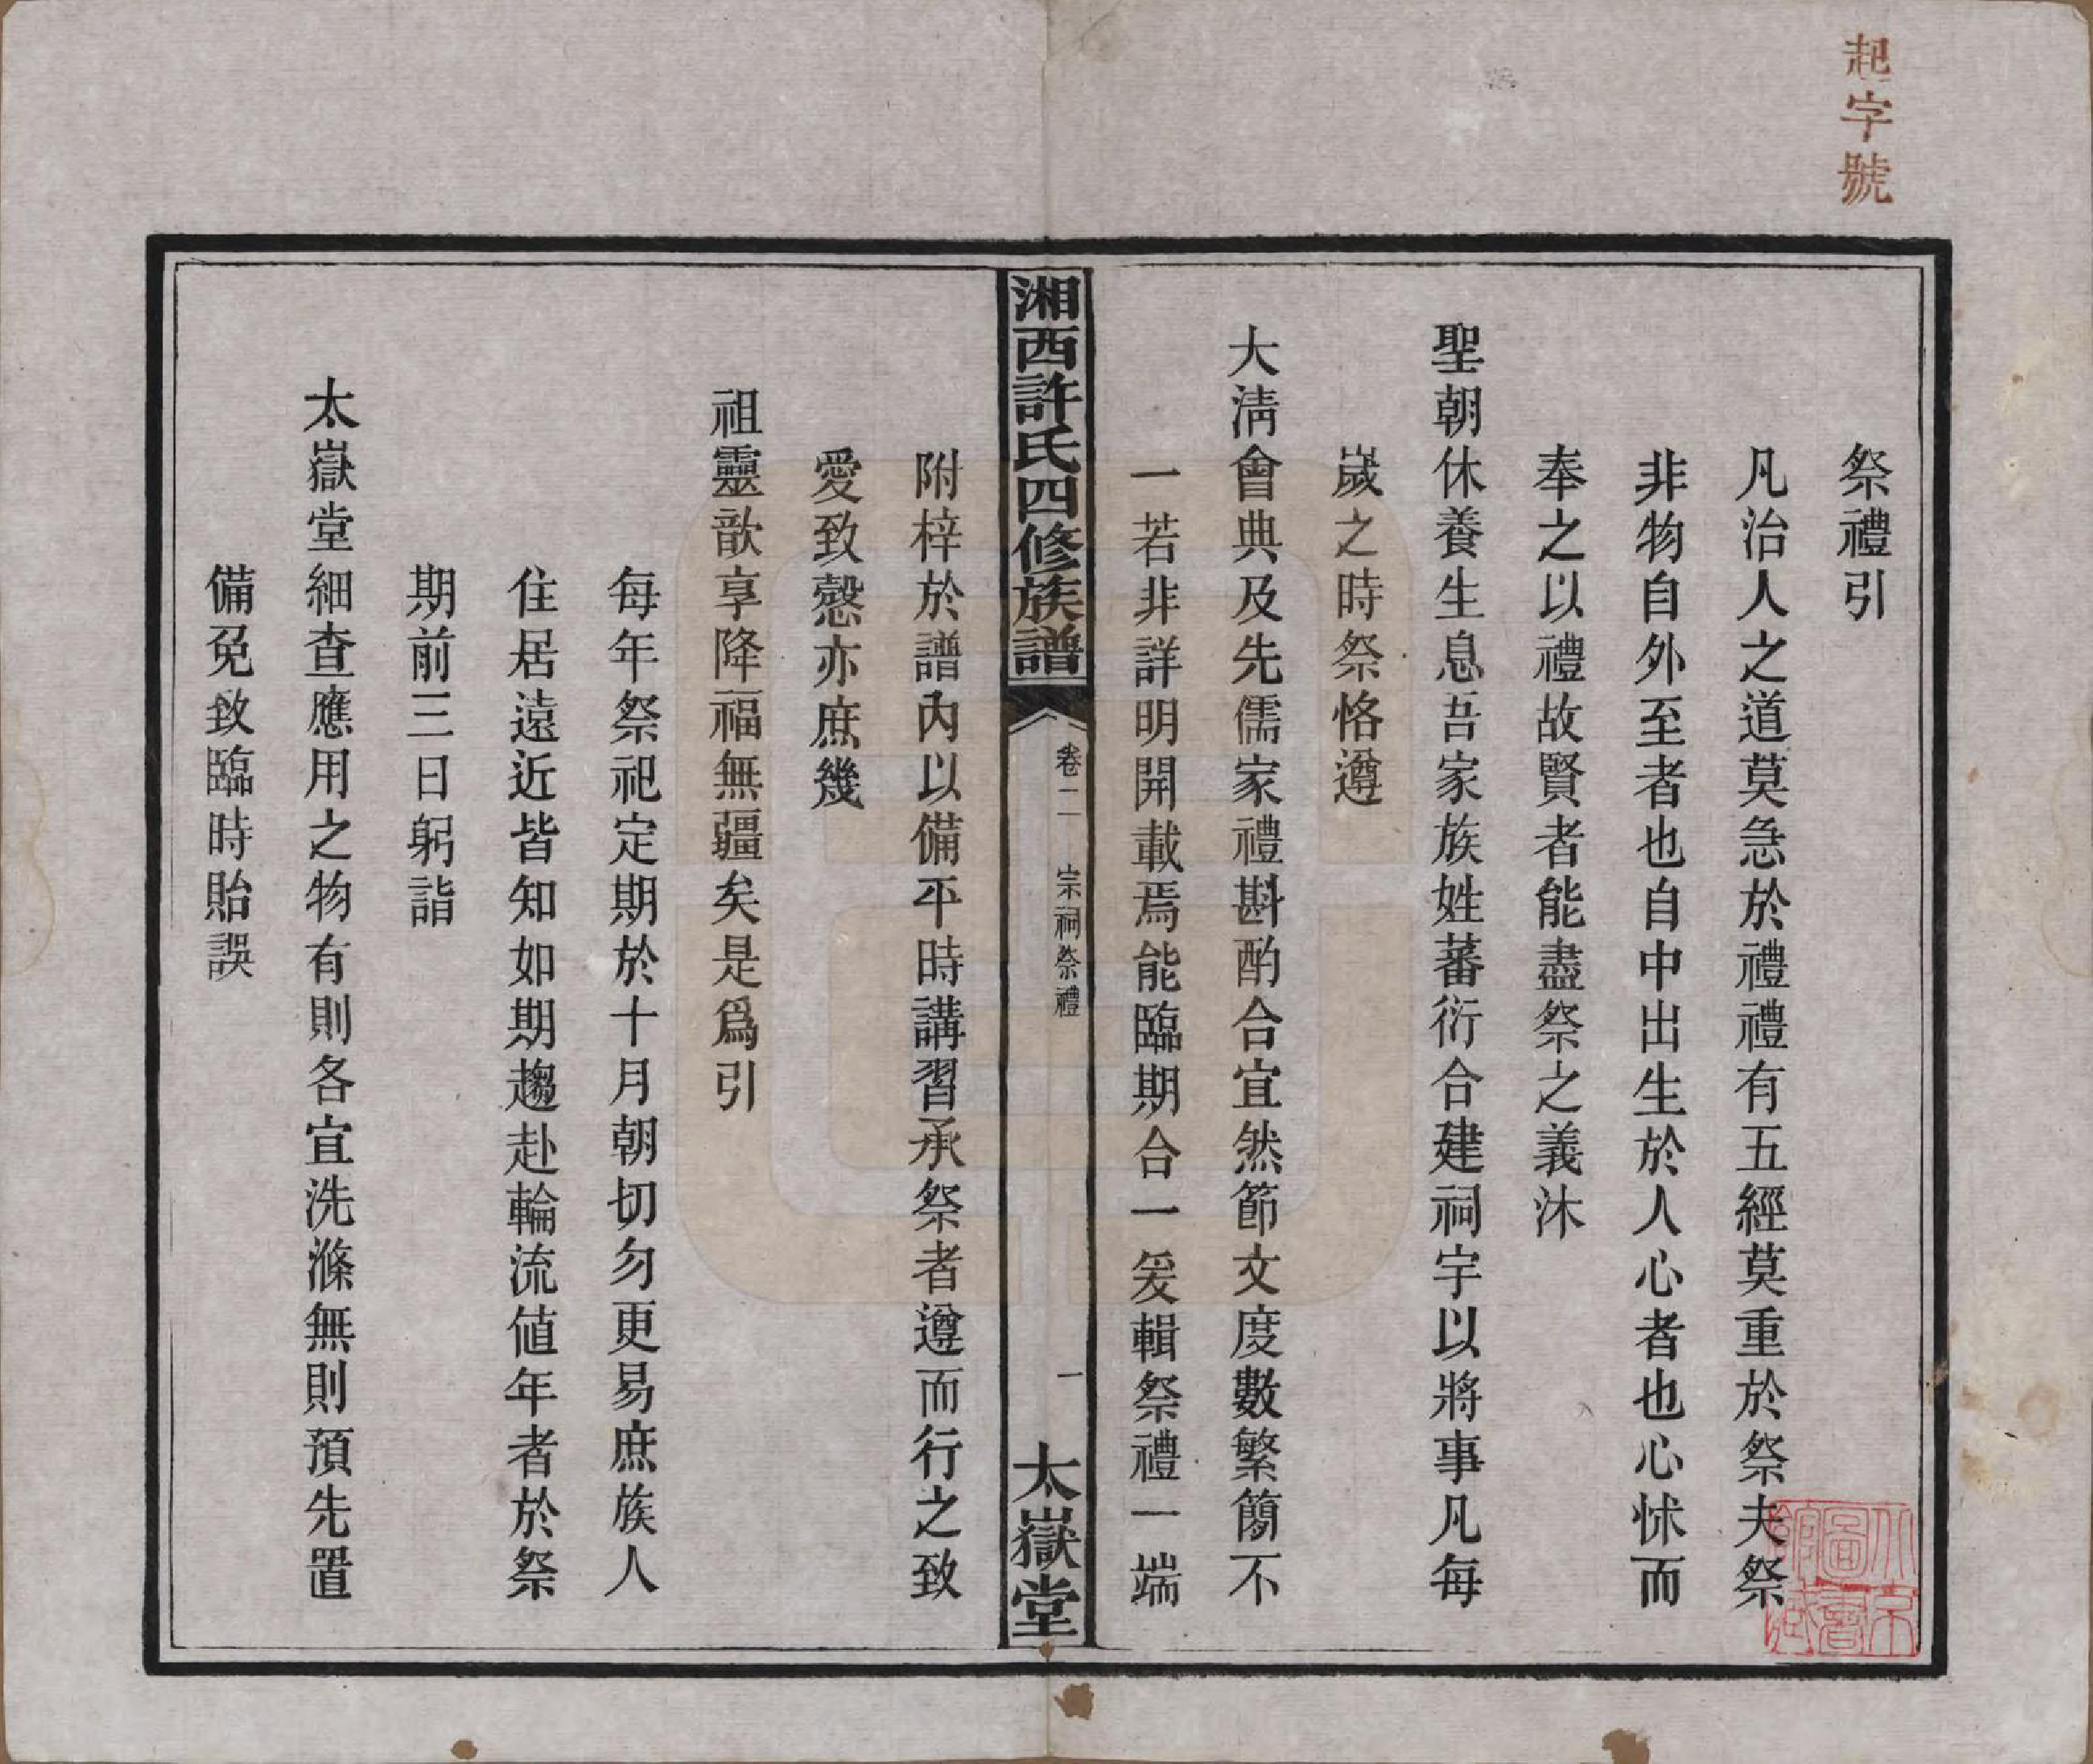 起字號
祭禮引
凡治人之道莫急於禮禮有五經莫重於祭夫祭
非物自外至者也自中出生於人心者也心怵而
奉之以禮故賢者能盡祭之義沐
聖朝休養生息吾家族姓蕃衍合建祠宇以將事凡每
歲之時祭恪遵
大淸會典及先儒家禮斟酌合宜然節文度數繁簡不
一若非詳明開載焉能臨期合一爰輯祭禮一端
湘西許氏四修族譜
卷二
宗祠祭禮
一
太嶽堂
附梓於譜內以備平時講習承祭者遵而行之致
愛致慤亦庶幾
祖靈歆享降福無疆矣是爲引
每年祭祀定期於十月朝切勿更易庶族人
住居遠近皆知如期趨赴輪流値年者於祭
期前三日躬詣
太嶽堂細查應用之物有則各宜洗滌無則預先置
備免致臨時貽誤
北京
圖書
館藏